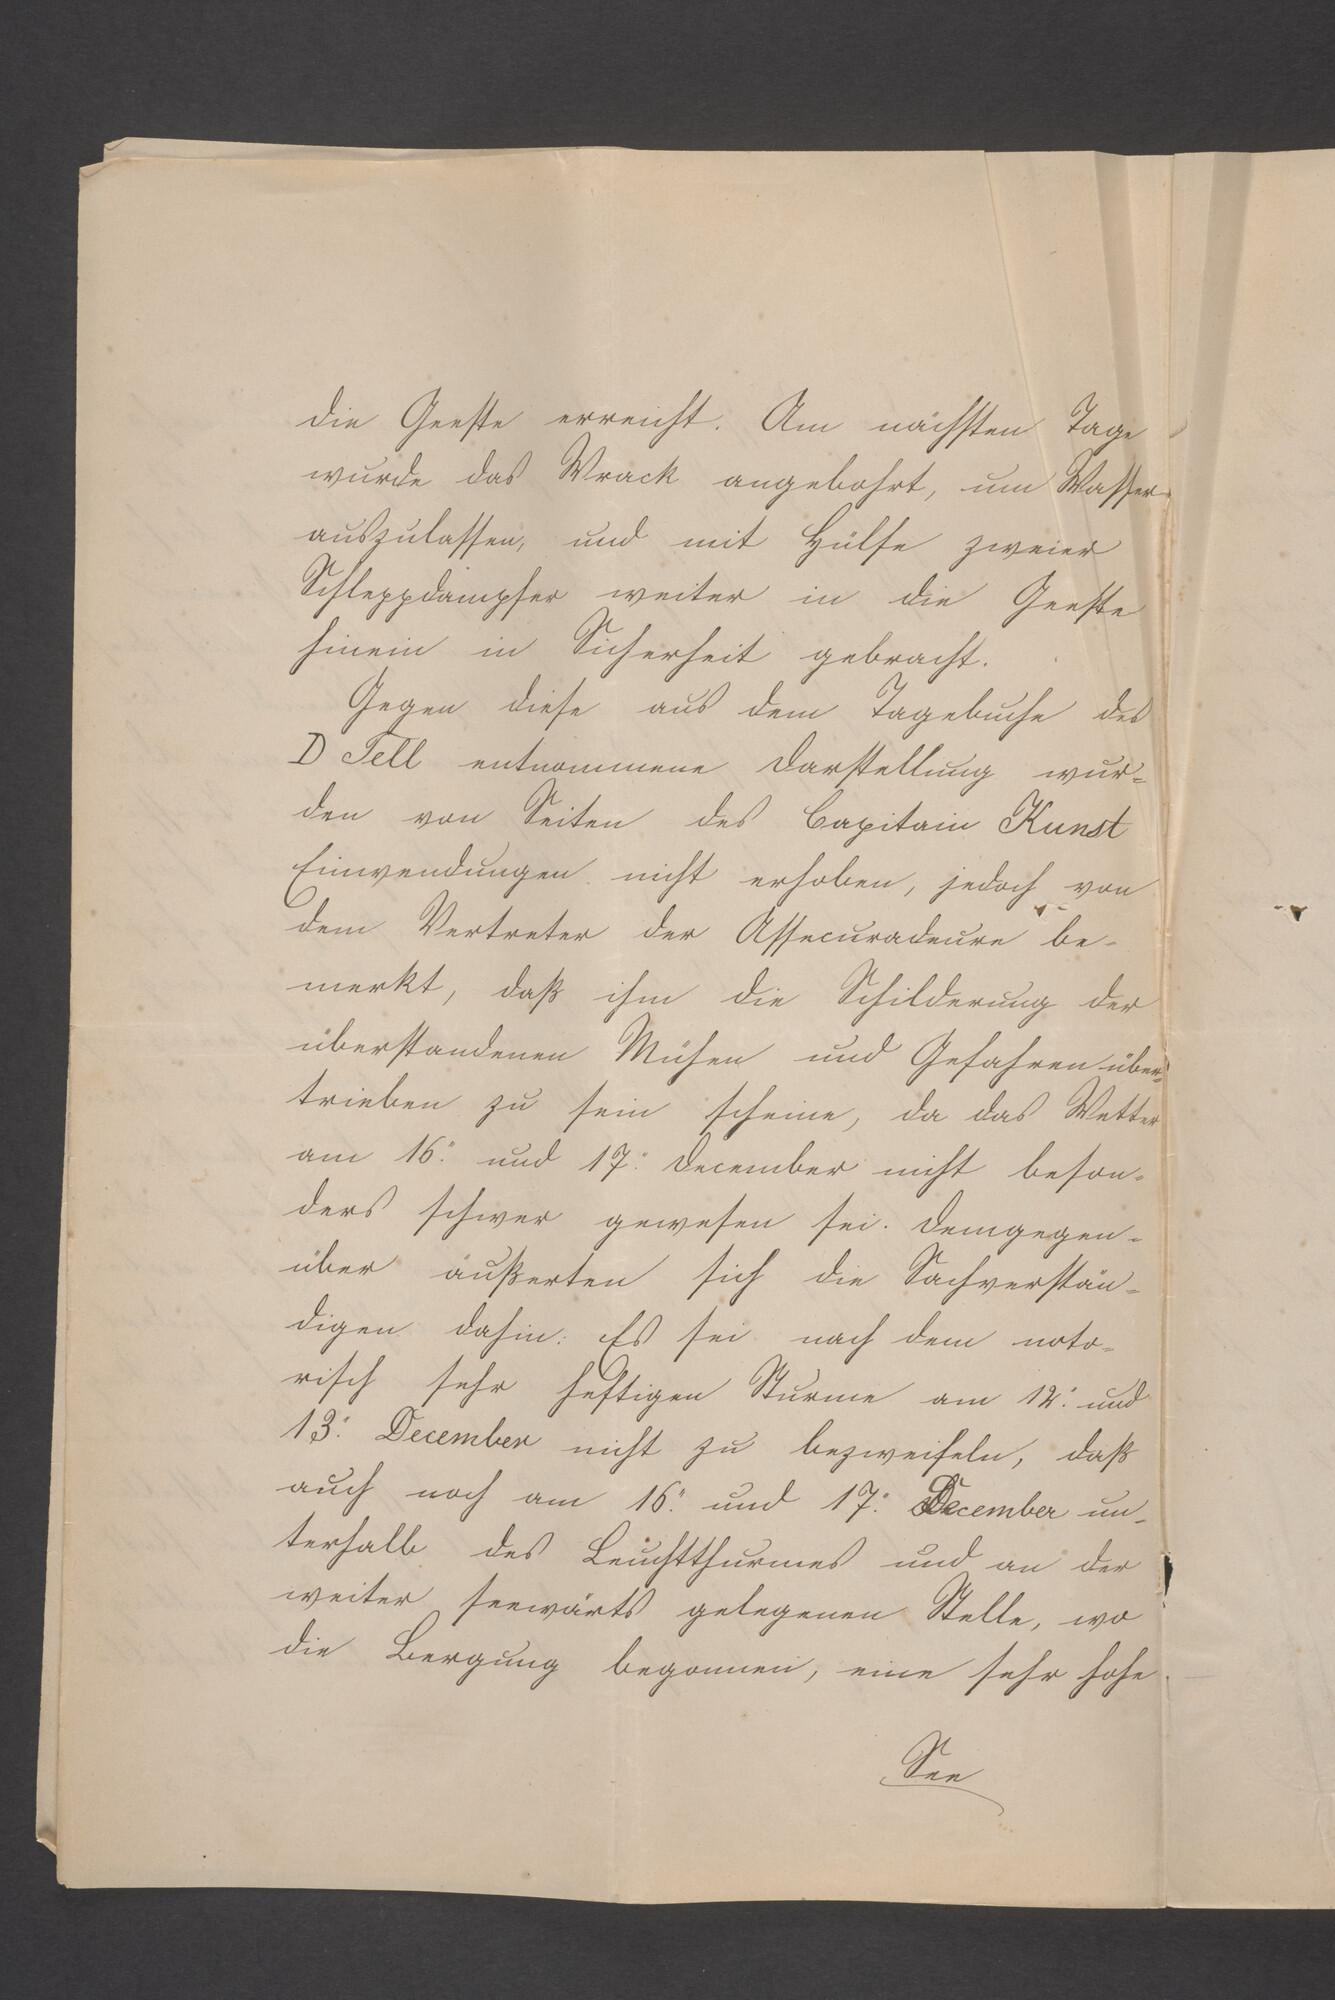 die Geeste erreicht. Am nächsten Tage
wurde das Wrack angebohrt, um Wasser
auszulassen, und mit Hülfe zweier
Schleppdampfer weiter in die Geeste
hinein in Sicherheit gebracht.
Gegen diese aus dem Tagebuche des
D Tell entnommene Darstellung wur-
den von Seiten des Capitain Kunst
Einwendungen nicht erhoben, jedoch von
dem Vertreter der Assecuradeure be-
merkt, daß ihm die Schilderung der
überstandenen Mühen und Gefahren über-
trieben zu sein scheine, da das Wetter
am 16. und 17. December nicht beson-
ders schwer gewesen sei. Demgegen-
über äußerten sich die Sachverstän-
digen dahin: Es sei nach dem noto-
risch sehr heftigen Sturme am 12. und
13. December nicht zu bezweifeln, daß
auch noch am 16. und 17. December un-
terhalb des Leuchtthurmes und an der
weiter seewärts gelegenen Stelle, wo
die Bergung begonnen, eine sehr hohe
See